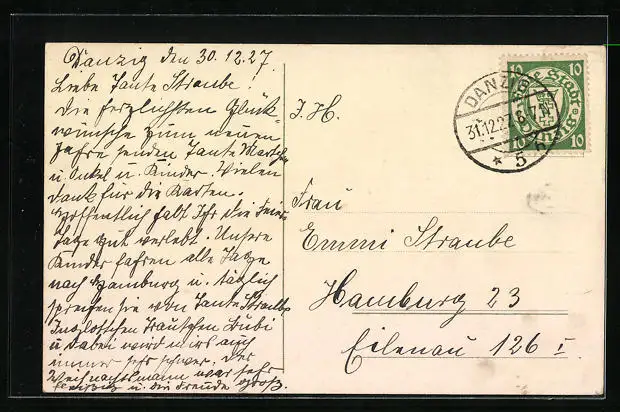 Danzig den 30.12.27.
Liebe Tante Straube.
Die herzlichsten Glück
wünsche zum neuen
Jahre senden Tante Martchen
u. Onkel u. Kinder. Vielen
Dank für die Karten.
Hoffentlich habt Ihr die Feier
tage gut verlebt. Unsere
Kinder fahren alle Tage
nach Hamburg u. täglich
sprechen sie von Tante Straube
u. dabei wird uns auch
immer sehr schwer. Der
Weihnachtsmann war sehr
fleißig u. die Freude groß.
I. H.
Frau
Emmi Straube
Hamburg 23
Eilenau 126 I
DANZIG
31.12.27. 6-7N
* 5 h
10 10
Freie Stadt
Danzig
10 10